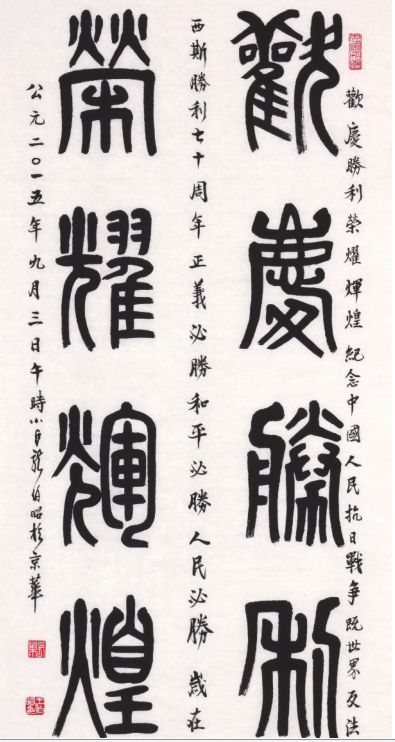 歡慶勝利
歡慶勝利榮耀輝煌紀念中國人民抗日戰争既世界反法
西斯勝利七十周年正義必勝和平必勝人民必勝歲在
榮耀輝煌
公元二〇一五年九月三日午時小白龍伯昭於京華